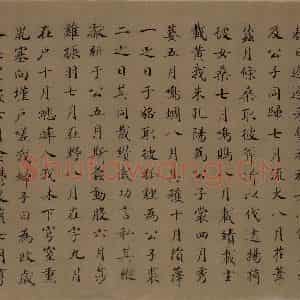 及公子同歸七月流火八月萑葦
蠶月條桑取彼斧斨以伐遠揚猗
彼女桑七月鳴鵙八月載績載玄
載黃我朱孔陽為公子裳四月秀
葽五月鳴蜩八月其穫十月隕蘀
一之日于貉取彼狐貍為公子裘
二之日其同載纘武功言私其豵
獻豜于公五月斯螽動股六月莎
雞振羽七月在野八月在宇九月
在戶十月蟋蟀入我床下穹窒熏
鼠塞向墐戶嗟我婦子曰為改歲
Shufawang.cn